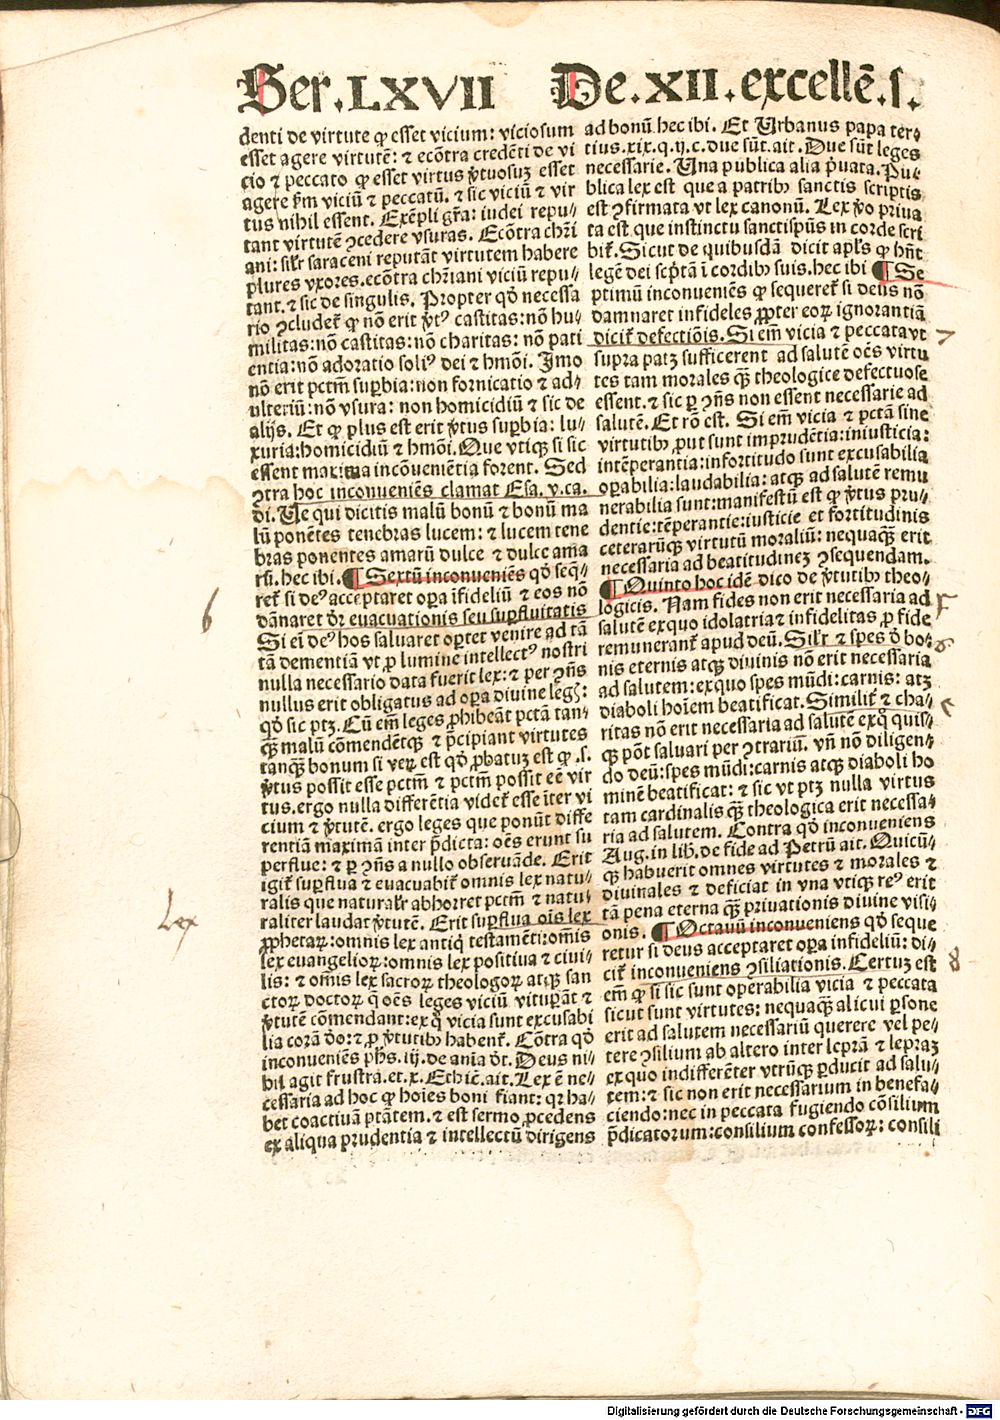 Ser. LXVII De. XII. excellē. s.
denti de virtute ꝙ esset vicium: viciosum
esset agere virtutē: ⁊ ecōtra credēti de vi
cio ⁊ peccato ꝙ esset virtus v̓tuosuꝫ esset
agere km̄ viciū ⁊ peccatū. ⁊ sic viciū ⁊ vir
tus nihil essent. Exēpli gr̄a: iudei repu⸗
tant virtutē ꝯcedere vsuras. Ecōtra chr̄i
ani: silr̄ saraceni reputāt virtutem habere
plures vxores. ecōtra chr̄iani viciū repu⸗
tant. ⁊ sic de singulis. Propter qd̓ necessa
rio ꝯcludet᷑ ꝙ nō erit v̓tꝰ castitas: nō hu⸗
militas: nō castitas: nō charitas: nō pati
entia: nō adoratio soliꝰ dei ⁊ hm̄oi. Imo
nō erit pctm̄ suꝑbia: non fornicatio ⁊ ad⸗
ulteriū: nō vsura: non homicidiū ⁊ sic de
alijs. Et ꝙ plus est erit v̓tus suꝑbia: lu⸗
xuria: homicidiū ⁊ hm̄oi. Que vtiqꝫ si sic
essent maxima incōuenientia forent. Sed
ꝯtra hoc inconueniēs clamat Esa. v. ca.
di. Ue qui dicitis malū bonū ⁊ bonū ma
lū ponētes tenebras lucem: ⁊ lucem tene
bras ponentes amarū dulce ⁊ dulce ama
rū. hec ibi. ¶ Sextū inconueniēs qd̓ seq̄⸗
ret᷑ si deꝰ acceptaret oꝑa īfideliū ⁊ eos nō
dānaret dr̄ euacuationis seu suꝑfluitatis
Si eī deꝰ hos saluaret oꝑtet venire ad tā
tā dementiā vt ꝓ lumine intellectꝰ nostri
nulla necessario data fuerit lex: ⁊ per ꝯn̄s
nullus erit obligatus ad oꝑa diuine leg̓:
qd̓ sic ptꝫ. Cū em̄ leges ꝓhibeāt pctā tan⸗
qꝫ̄ malū cōmendētqꝫ ⁊ p̄cipiant virtutes
tanqꝫ̄ bonum si veꝝ est qd̓ ꝓbatuꝫ est ꝙ .s.
v̓tus possit esse pctm̄ ⁊ pctm̄ possit eē vir
tus. ergo nulla differētia videt᷑ esse īter vi
cium ⁊ v̓tutē. ergo leges que ponūt diffe
rentiā maximā inter p̄dicta: oēs erunt su
perflue: ⁊ ꝑ ꝯn̄s a nullo obseruāde. Erit
igit᷑ suꝑflua ⁊ euacuabit᷑ omnis lex natu⸗
ralis que naturalr̄ abhorret pctm̄ ⁊ natu⸗
raliter laudat v̓tutē. Erit suꝑflua oīs lex
ꝓphetaꝝ: omnis lex antiq̄ testamēti: om̄is
lex euangelioꝝ: omnis lex positiua ⁊ ciui⸗
lis: ⁊ om̄is lex sacroꝝ theologoꝝ atqꝫ san
ctoꝝ doctoꝝ q̄ oēs leges viciū vituꝑāt ⁊
v̓tutē cōmendant: ex q̊ vicia sunt excusabi
lia corā d̓o: ⁊ ꝓ v̓tutibꝫ habent᷑. Cōtra qd̓
inconueniēs ph̄s. iij. de anīa d̓t. Deus ni⸗
hil agit frustra. et .x. Ethic̄. ait. Lex ē ne⸗
cessaria ad hoc ꝙ hoīes boni fiant: qꝛ ha⸗
bet coactiuā ptātem. ⁊ est sermo ꝓcedens
ex aliqua prudentia ⁊ intellectū dirigens
ad bonū. hec ibi. Et Urbanus papa ter⸗
tius. xix. q. ij. c. due sūt. ait. Due sūt leges
necessarie. Una publica alia p̄uata. Pu⸗
blica lex est que a patribꝫ sanctis scriptis
est ꝯfirmata vt lex canonū. Lex v̓o priua
ta est que instinctu sanctispūs in corde scri
bit᷑. Sicut de quibusdā dicit apl̓s ꝙ hn̄t
legē dei scp̄tā ī cordibꝫ suis. hec ibi ¶ Se
ptimū inconueniēs ꝙ sequeret᷑ si deus nō
damnaret infideles ꝓpter eoꝝ ignorantiā
dicit᷑ defectiōis. Si em̄ vicia ⁊ peccata vt
supra patꝫ sufficerent ad salutē oēs virtu
tes tam morales qꝫ̄ theologice defectuose
essent. ⁊ sic ꝑ ꝯn̄s non essent necessarie ad
salutē. Et rō est. Si em̄ vicia ⁊ pctā sine
virtutibꝫ ꝓut sunt imprudētia: iniusticia:
intēperantia: infortitudo sunt excusabilia
oꝑabilia: laudabilia: atqꝫ ad salutē remu
nerabilia sunt: manifestū est ꝙ v̓tus pru⸗
dentie: tēperantie: iusticie et fortitudinis
ceterarūqꝫ virtutū moraliū: nequaqꝫ̄ erit
necessaria ad beatitudineꝫ ꝯsequendam.
¶ Quinto hoc idē dico de v̓tutibꝫ theo⸗
logicis. Nam fides non erit necessaria ad
salutē ex quo idolatria ⁊ infidelitas ꝓ fide
remunerant᷑ apud deū. Silr̄ ⁊ spes d̓ bo⸗
nis eternis atqꝫ diuinis nō erit necessaria
ad salutem: ex quo spes mūdi: carnis: atqꝫ
diaboli hoīem beatificat. Similit᷑ ⁊ cha⸗
ritas nō erit necessaria ad salutē ex q̊ quis⸗
qꝫ̄ pōt saluari per ꝯtrariū. vn̄ nō diligen⸗
do deū: spes mūdi: carnis atqꝫ diaboli ho
minē beatificat: ⁊ sic vt ptꝫ nulla virtus
tam cardinalis qꝫ̄ theologica erit necessa⸗
ria ad salutem. Contra qd̓ inconueniens
Aug. in lib. de fide ad Petrū ait. Quicū⸗
qꝫ habuerit omnes virtutes ⁊ morales ⁊
diuinales ⁊ deficiat in vna vtiqꝫ reꝰ erit
tā pena eterna qꝫ̄ priuationis diuine visi⸗
onis. ¶ Octauū inconueniens qd̓ seque
retur si deus acceptaret oꝑa infideliū: di⸗
cit᷑ inconueniens ꝯsiliationis. Certuꝫ est
em̄ ꝙ si sic sunt operabilia vicia ⁊ peccata
sicut sunt virtutes: nequaqꝫ̄ alicui ꝑsone
erit ad salutem necessariū querere vel pe⸗
tere ꝯsilium ab altero inter leprā ⁊ lepraꝫ
ex quo indifferēter vtrūqꝫ ꝑducit ad salu⸗
tem: ⁊ sic non erit necessarium in benefa⸗
ciendo: nec in peccata fugiendo cōsilium
p̄dicatorum: consilium confessoꝝ: consili
6
Lex
7
8